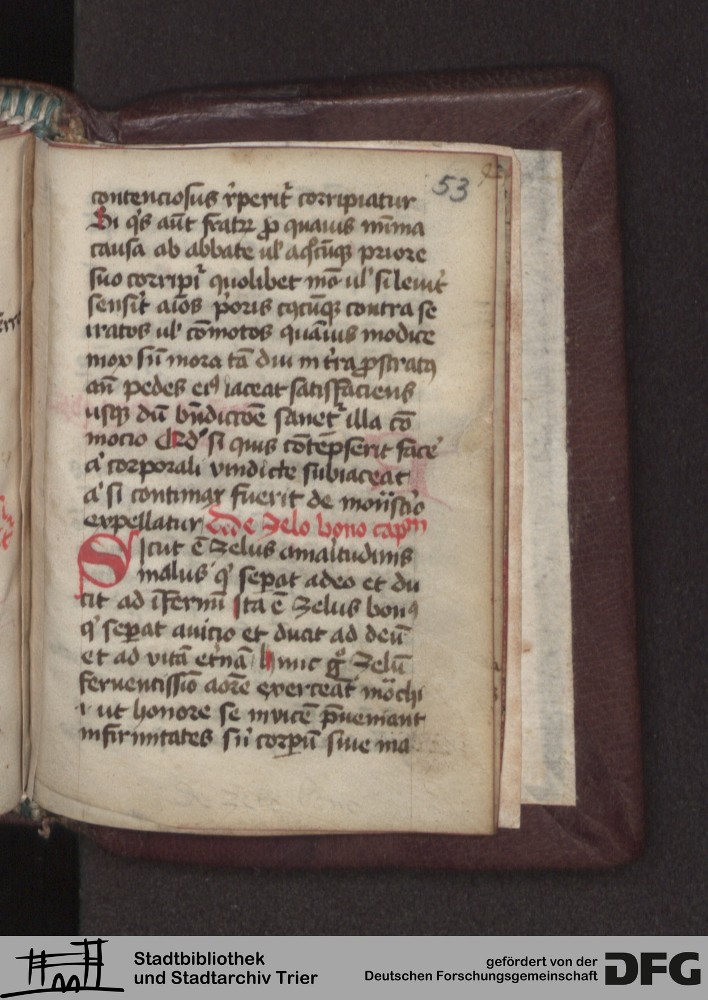 53
contenciosus rꝑerit᷑ corripiatur
Si q's aut̄ fratr̄ ꝓ quauis mīma
causa ab abbate ul' a q̄cūqꝫ priore
suo corripit᷑ quolibet mō ul' si leuit᷑
sensit᷑ aīos p̓oris cuiuscūqꝫ contra se
iratos ul' cōmotos quāuis modice
mox sn̄ mora tā diu in t̓ra ꝓstratꝰ
an̄ pedes eiꝰ iaceat satisfaciens
usqꝫ dū bn̄dictōe sanet᷑ illa cō
mocio Qd' si quis cōtēpserit face᷑
a' corporali vindicte subiaceat
a' si contumax fuerit de mon̄st̓io
expellatur De Zelo bono cap̄m
Sicut ē Zelus amaritudinis
malus q' seꝑat a deo et du
cit ad īfernū Ita ē Zelus bonꝰ
q' seꝑat a uicio et ducit ad deū
et ad vitā et̓nā hunc gͦ Zelū
feruentissiō aore exerceāt mōchi
ı ut honore se inuicē p̄ueniant
infirmitates sn̄ corpū siue ma
Stadtbibliothek
und Stadtarchiv Trier
gefördert von der
Deutschen Forschungsgemeinschaft
DFG